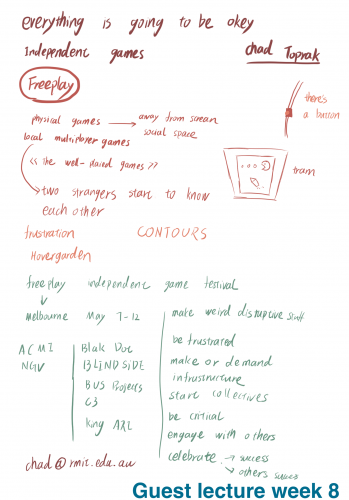 everything is going to be okey
Independent games
chad Toprak
Freeplay
physical games → away from screan
social space
local multiplayer games
there's
a button
tram
two strangers start to know
each other
frustration
CONTOURS
Hovergarden
freeplay independent game festival
Melbourne May 7-12
make weird disruptive stuff
be frustrated
ACMI
NGV
Blak Dot
BLINDSIDE
BUS Projects
C3
King ARI
make or demand
infrustructure
start collectives
be critical
engage with others
celebrate → success
→ others success
chad@rmit.edu.au
Guest lecture week 8